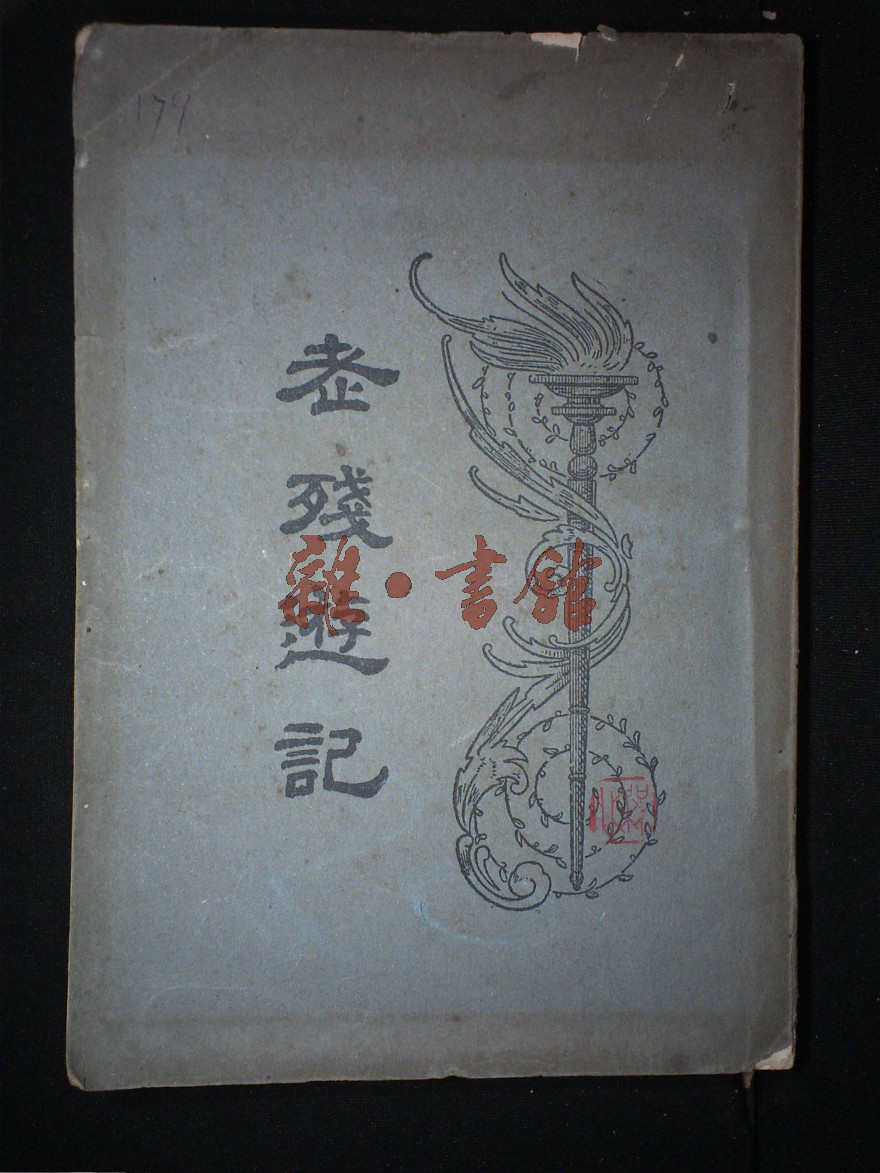 179
老殘遊記
雜·書館